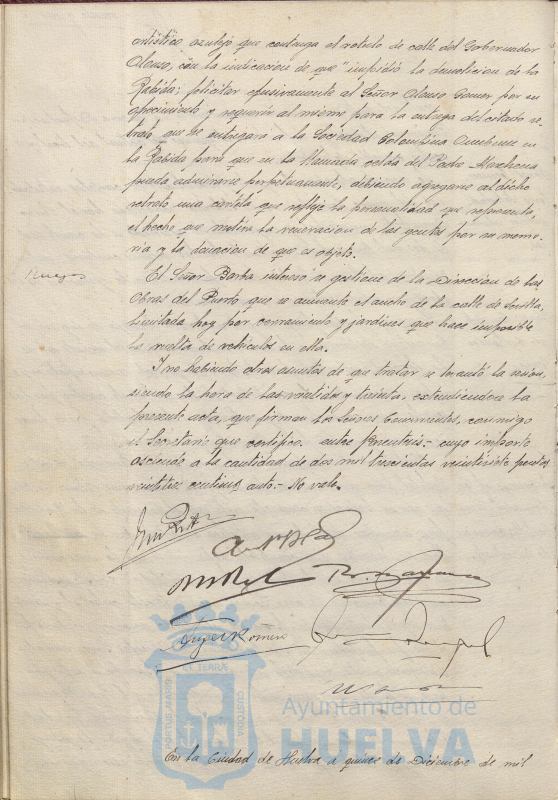 artístico azulejo que contenga el rotulo de calle del Gobernador
Alonso, con la indicacion de que "impidió la demolicion de la
Rábida; felicitar efusivamente al Señor Alonso Gomer por su
ofrecimiento y requerir al mismo para la entrega del citado re-
trato que se entregara a la Sociedad Colombina Onubense en
la Rábida para que en la llamada celda del Padre Marchena
pueda admirarse perpetuamente, debiendo agregarse al dicho
retrato una cartela que refleje la personalidad que representa,
el hecho que motiva la veneracion de las gentes por su memo-
ria y la donacion de que es objeto.
Ruegos
El Señor Barba intereso se gestione de la Direccion de las
Obras del Puerto que se aumente el ancho de la calle de Sevilla,
limitada hoy por cerramiento y jardines que hace imposible
la vuelta de vehículos en ella.
Y no habiendo otros asuntos de que tratar se levantó la sesion
siendo la hora de las veintiún y treinta, extendiendose la
presente acta, que firman los Señores Concurrentes, conmigo
el Secretario que certifico. entre parentesis = cuyo importe
asciende a la cantidad de dos mil trescientas veintisiete pesetas
centimos = No vale.
Angel Romero
PORTUS MARIS
ET TERRAE
CUSTODIA
Ayuntamiento de
HUELVA
En la Ciudad de Huelva a quince de Diciembre de mil